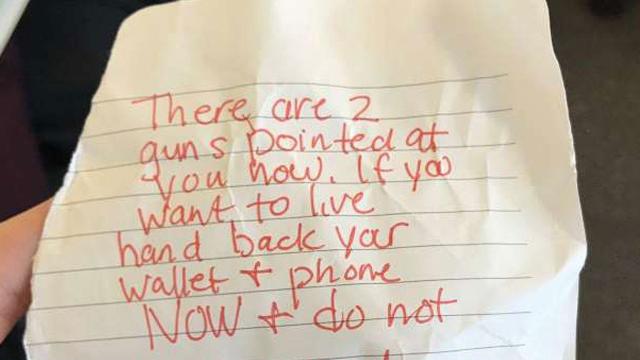 There are 2
guns pointed at
you now. If you
want to live
hand back your
wallet + phone
NOW + do not